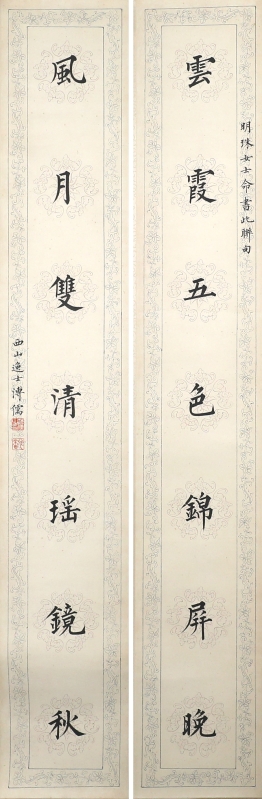 明珠女士命書此聯句
雲霞五色錦屏晚
風月雙清瑤鏡秋
西山逸士溥儒